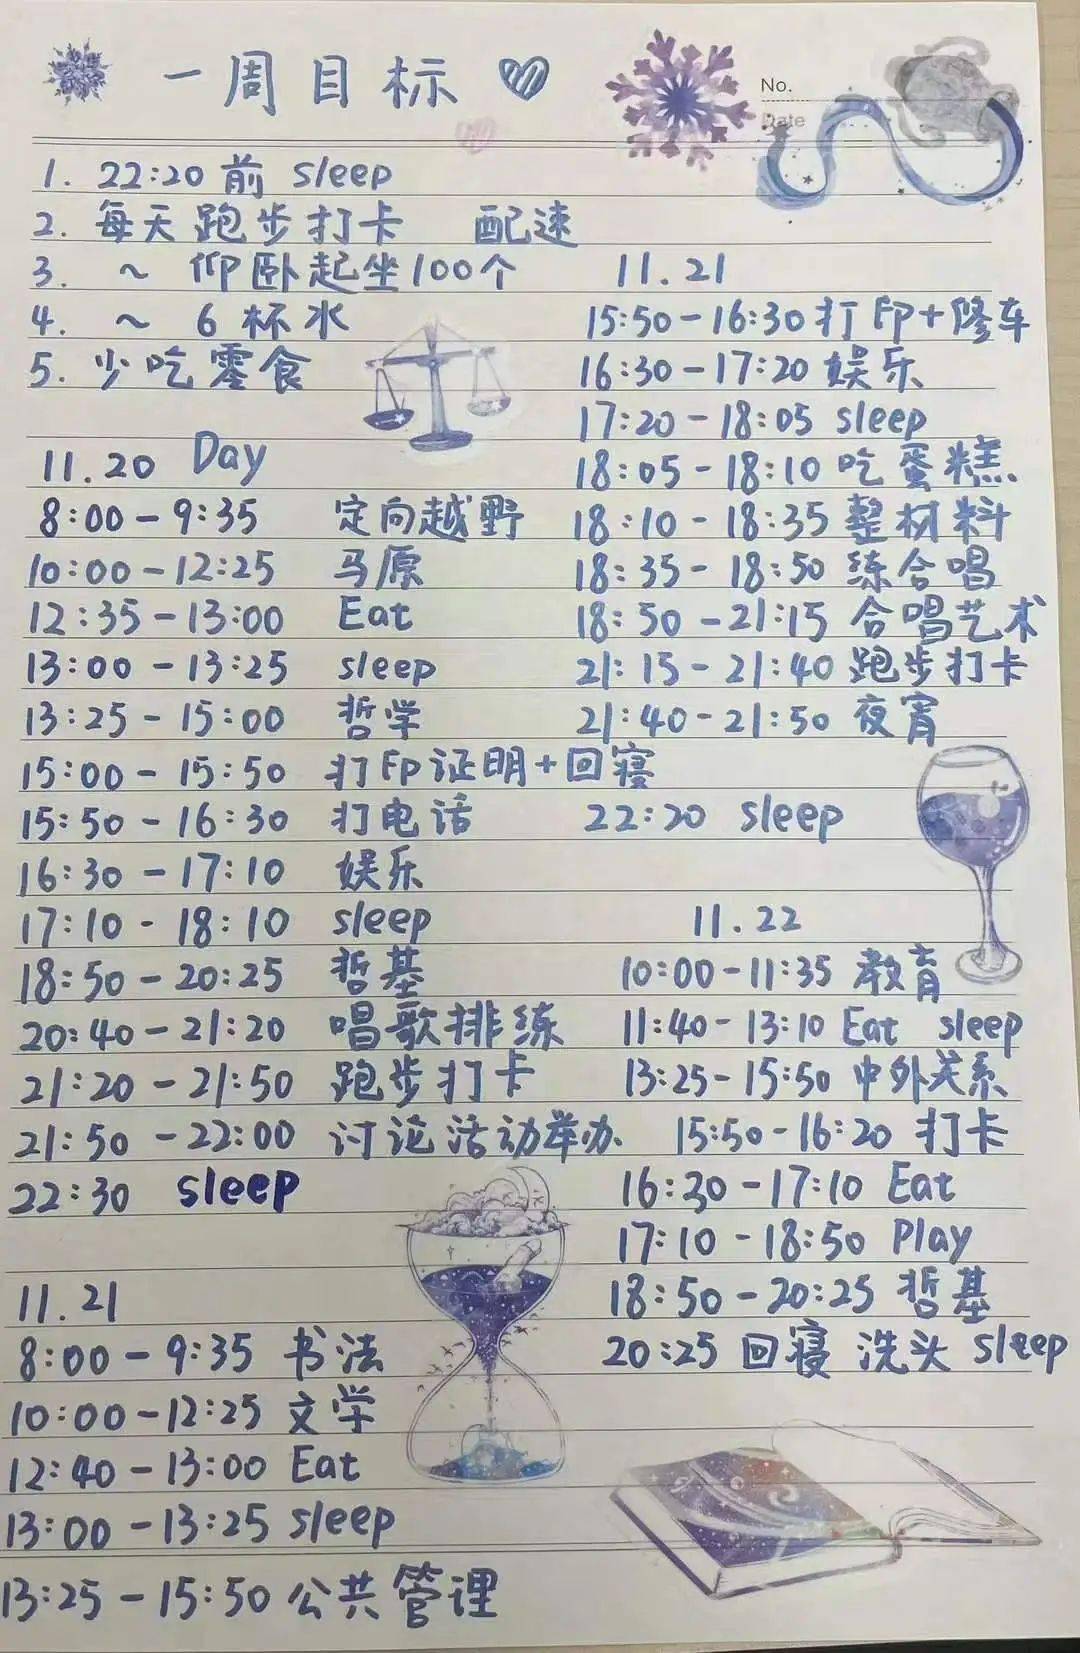 一周目标
No.
Date
1. 22:20前 sleep
2. 每天跑步打卡 配速
3. ~ 仰卧起坐100个
4. ~ 6杯水
5. 少吃零食
11.20 Day
8:00-9:35 定向越野
10:00-12:25 马原
12:35-13:00 Eat
13:00-13:25 sleep
13:25-15:00 哲学
15:00-15:50 打印证明+回寝
15:50-16:30 打电话
16:30-17:10 娱乐
17:10-18:10 sleep
18:50-20:25 哲基
20:40-21:20 唱歌排练
21:20-21:50 跑步打卡
21:50-22:00 讨论活动举办
22:30 sleep
11.21
8:00-9:35 书法
10:00-12:25 文学
12:40-13:00 Eat
13:00-13:25 sleep
13:25-15:50 公共管理
11.21
15:50-16:30 打印+修车
16:30-17:20 娱乐
17:20-18:05 sleep
18:05-18:10 吃蛋糕
18:10-18:35 整材料
18:35-18:50 练合唱
18:50-21:15 合唱艺术
21:15-21:40 跑步打卡
21:40-21:50 夜宵
22:20 sleep
11.22
10:00-11:35 教育
11:40-13:10 Eat sleep
13:25-15:50 中外关系
15:50-16:20 打卡
16:30-17:10 Eat
17:10-18:50 Play
18:50-20:25 哲基
20:25 回寝 洗头 sleep